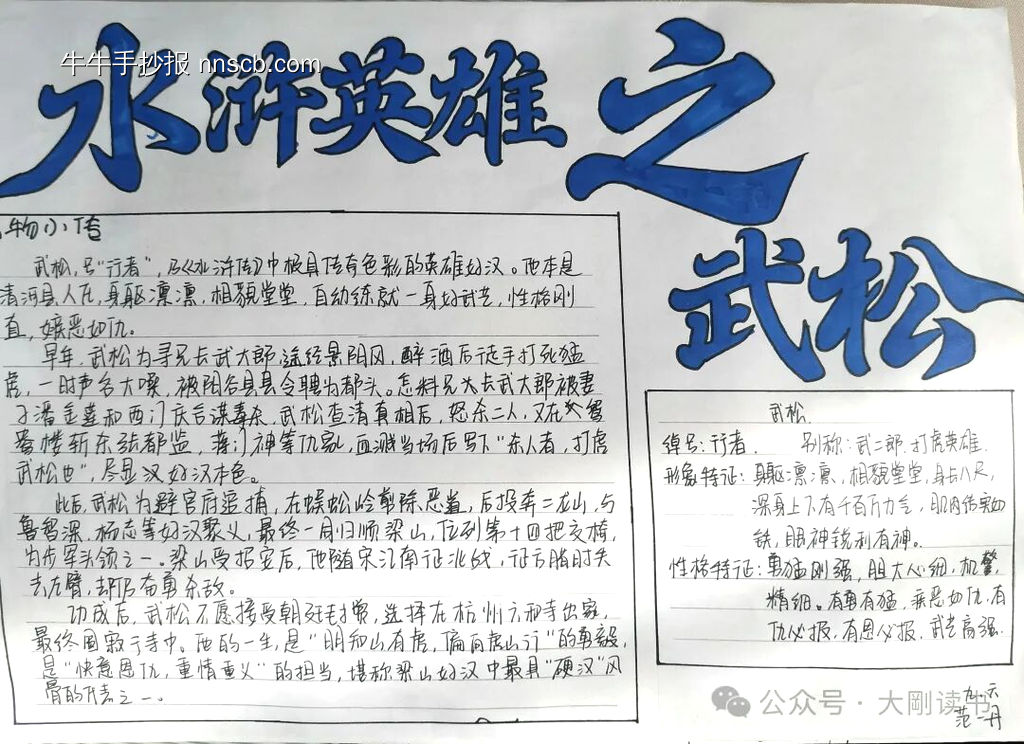 水浒英雄之
牛牛手抄报 nnscb.com
武松
物小传
武松,号“行者”,乃《水浒传》中极具传奇色彩的英雄好汉。他本是
清河县人氏,身躯凛凛,相貌堂堂,自幼练就一身好武艺,性格刚
直,嫉恶如仇。
早年,武松为寻兄长武大郎途经景阳冈,醉酒后徒手打死猛
虎,一时声名大噪,被阳谷县县令聘为都头。怎料兄长武大郎被妻
子潘金莲和西门庆合谋毒杀,武松查清真相后,怒杀二人,又在鸳
鸯楼斩杀张都监,蒋门神等仇敌,血溅当场后写下“杀人者,打虎
武松也”,尽显汉好汉本色。
此后,武松为避官府追捕,在蜈蚣岭剪除恶道,后投奔二龙山,与
鲁智深,杨志等好汉聚义,最终一同归顺梁山,位列第十四把交椅,
为步军头领之一。梁山受招安后,他随宋江南征北战,征方腊时失
去左臂,却仍奋勇杀敌。
功成后,武松不愿接受朝廷封赏,选择在杭州六和寺出家,
最终圆寂于寺中。他的一生,是“明知山有虎,偏向虎山行”的勇毅,
是“快意恩仇,重情重义”的担当,堪称梁山好汉中最具“硬汉”风
骨的代表之一。
武松
绰号:行者 别称:武二郎.打虎英雄.
形象特征:身躯凛凛,相貌堂堂,身长八尺,
浑身上下有千百万力气,肌肉结实如
铁,眼神锐利有神。
性格特征:勇猛刚强,胆大心细,机警,
精细。有勇有猛,疾恶如仇,有
仇必报,有恩必报,武艺高强.
九.六
范一丹
公众号·大刚读书